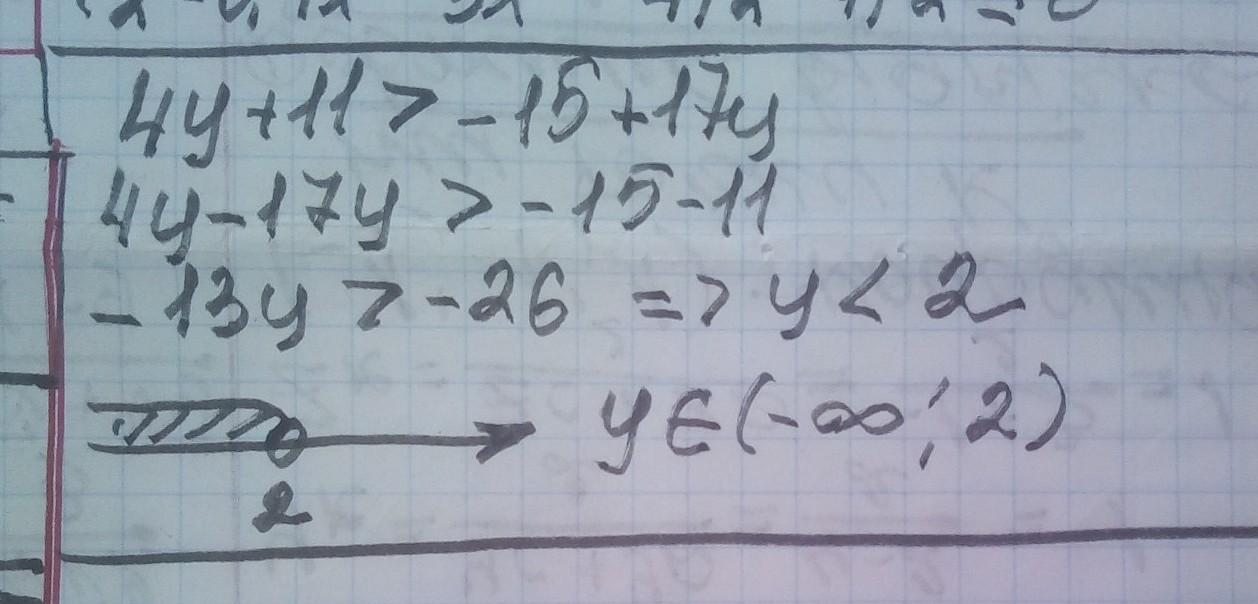 4y+11 > -15+17y
4y-17y > -15-11
-13y > -26 => y < 2
y∈(-∞; 2)
2